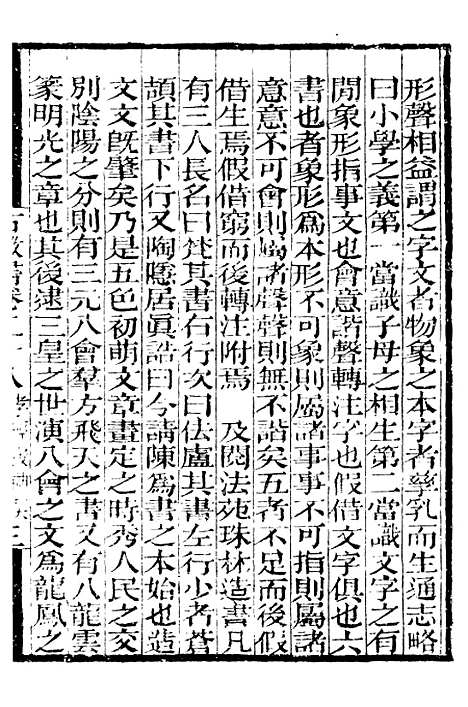 形聲相益謂之字文者物象之本字者孳乳而生通志略
曰小學之義第一當識子母之相生第二當識文字之有
閒象形指事文也會意諧聲轉注字也假借文字俱也六
書也者象形爲本形不可象則屬諸事事不可指則屬諸
意意不可會則屬諸聲聲則無不諧矣五者不足而後假
借生焉假借窮而後轉注附焉　及閱法苑珠林造書凡
有三人長名曰梵其書右行次曰佉盧其書左行少者蒼
頡其書下行又陶隱居眞誥曰今請陳爲書之本始也造
文文旣肇矣乃是五色初萌文章畫定之時秀人民之交
別陰陽之分則有三元八會羣方飛天之書又有八龍雲
篆明光之章也其後逮二皇之世演八會之文爲龍鳳之